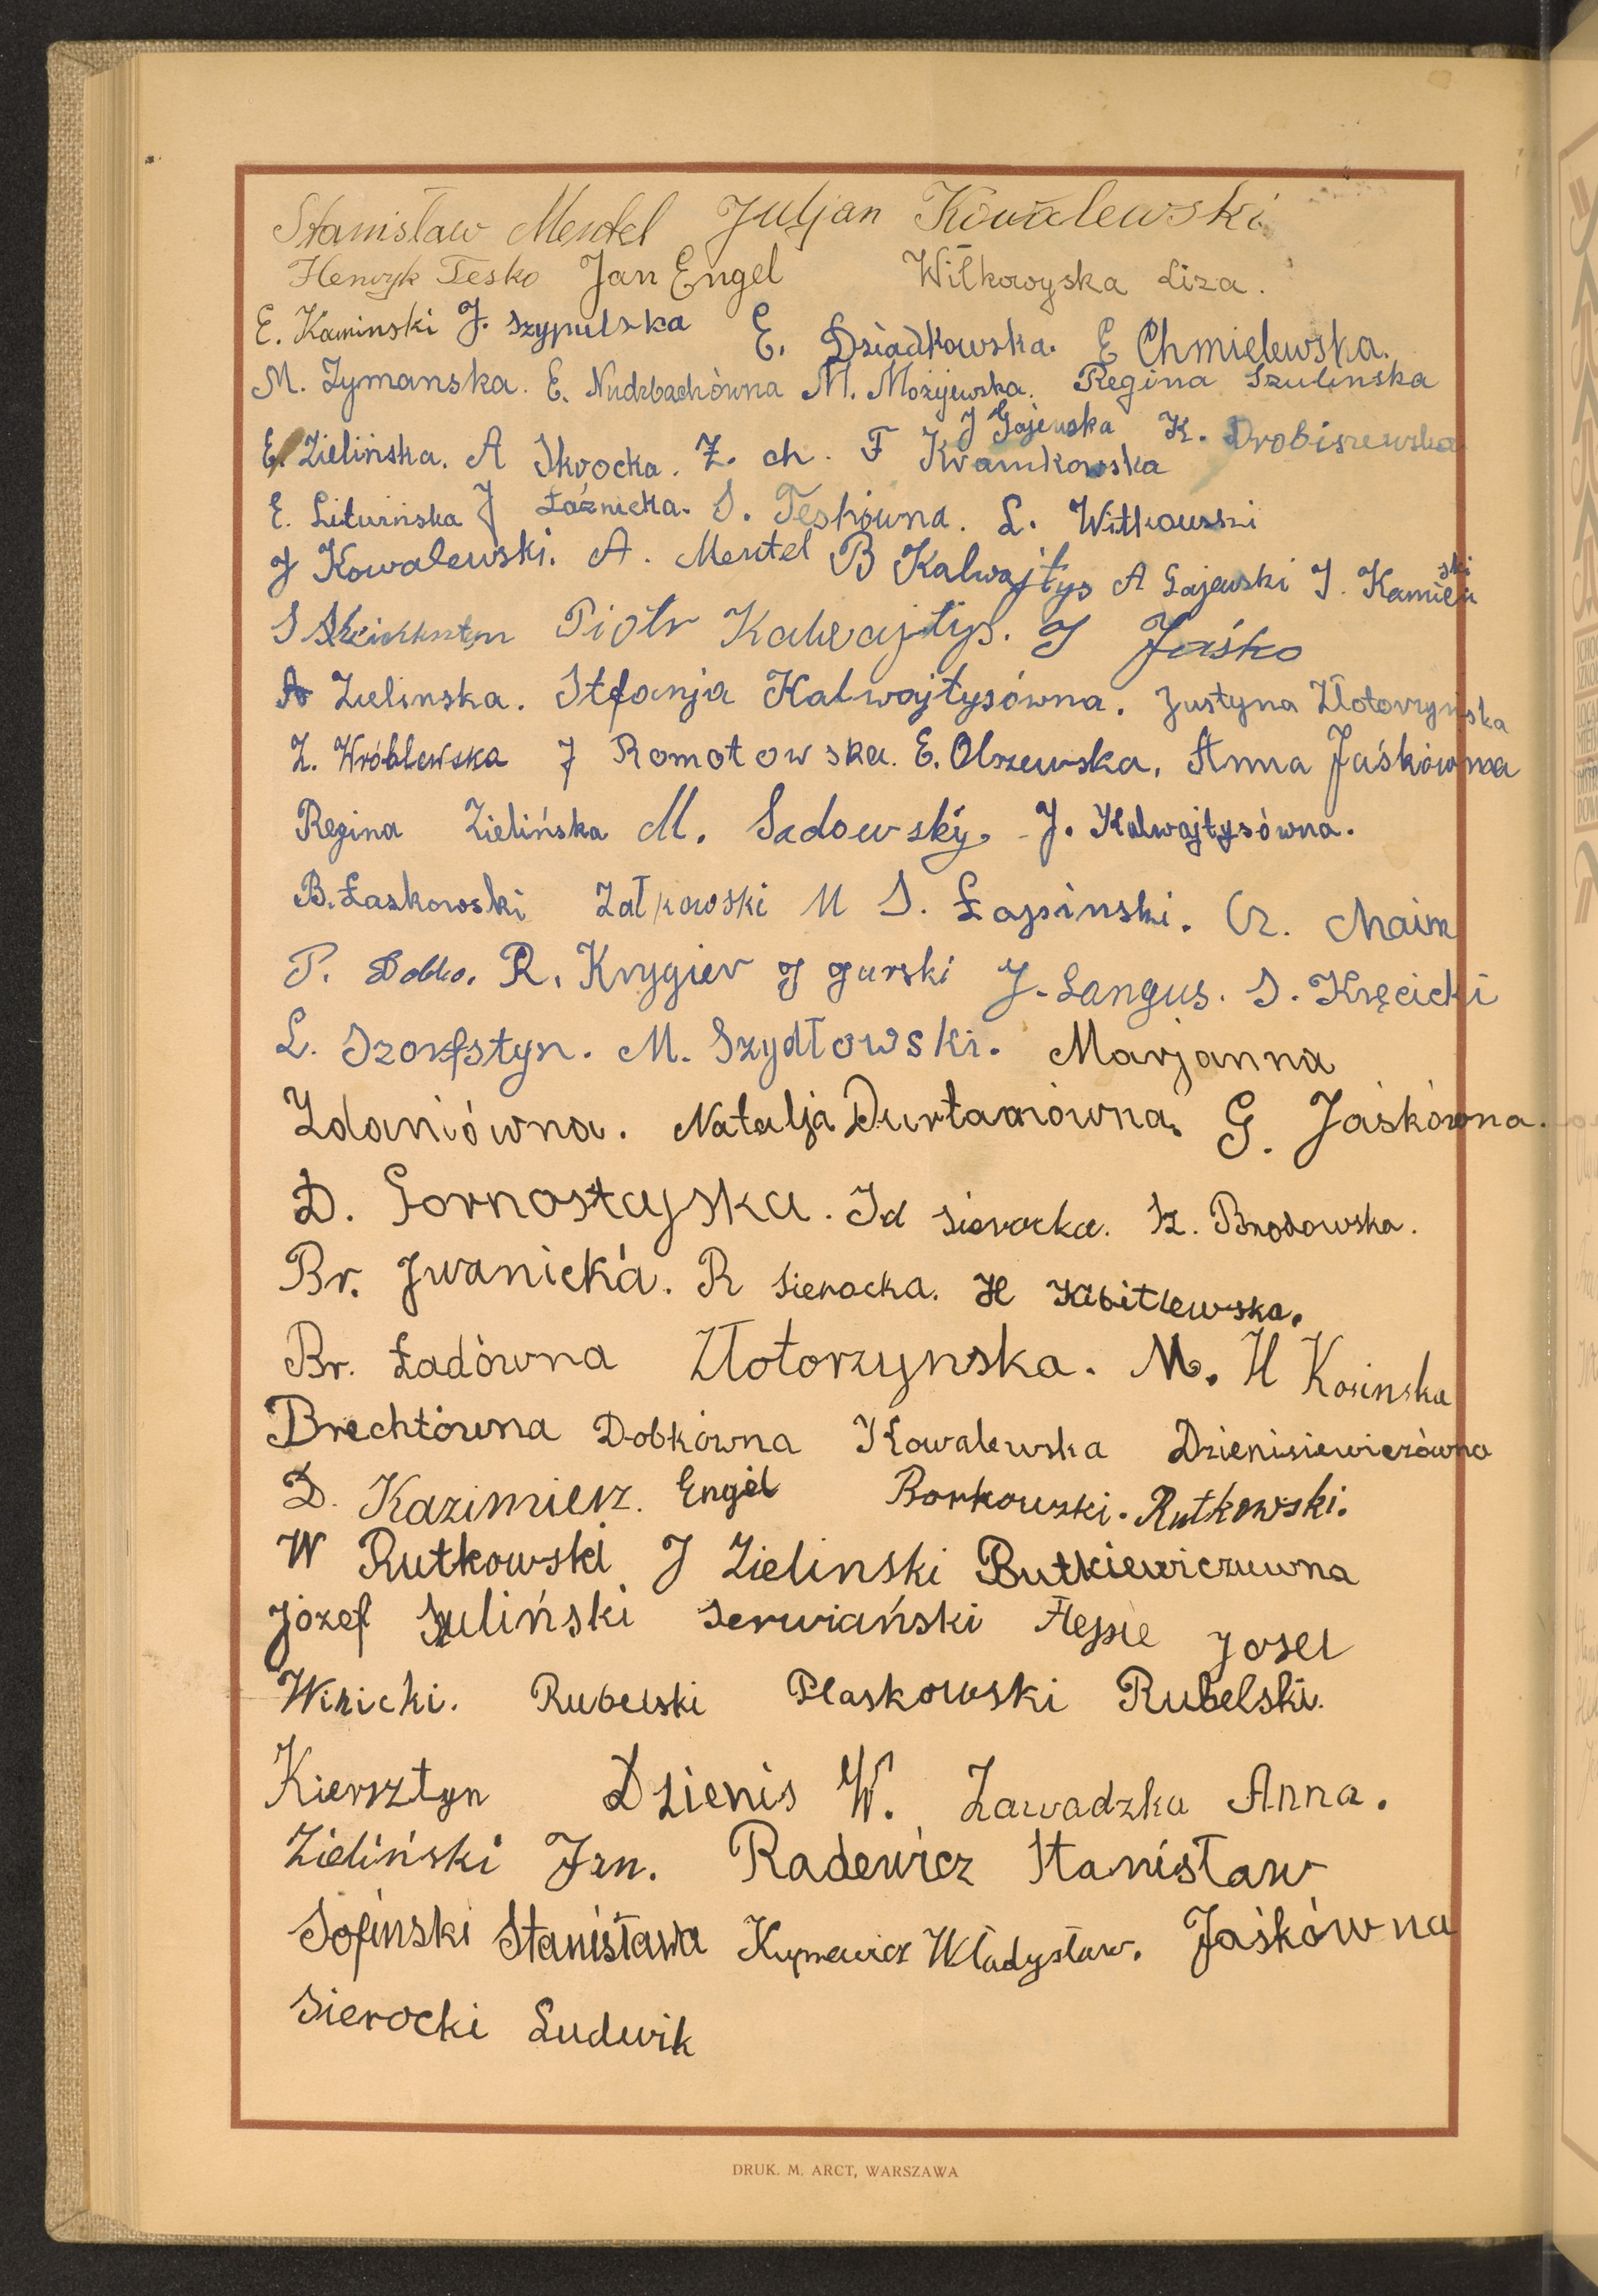 Stanisław Mentel Juljan Kowalewski
Henryk Tesko Jan Engel Wiłkowyska Liza.
E. Kaminski J. Szypulska E. Dziadkowska. E Chmielewska.
M. Zymanska. E. Nudzbachówna M. Możyjewska. Regina Szulinska
J Gajewska K. Drobiszewska
E. Zielińska. A Skrocka. Z. ch. F Kramkowska
E. Liturińska J Łaźnicka. S. Teskówna. L. Witkowski
J Kowalewski. A. Mentel B Kalwajtys A Gajewski J. Kamieński
S Piotr Kalwajtys. J Jaśko
A Zielinska. Stefanja Kalwajtysówna. Justyna Złotorzyńska
Z. Wróblewska J Romotowska. E. Olszewska. Anna Jaśkówna
Regina Zielińska M. Sadowský J. Kalwajtysówna.
B. Łaskowski Załkowski M S. Łapinski. Cz. Chaim
P. Dobko. R. Krygier J Gurski J. Langus. S. Kręcicki
L. Szorfstyn. M. Szydłowski. Marjanna
Zdaniówna. Natalja Durtanówna. G. Jaśkówna.
D. Gornostajska. Id Sierocka. Sz. Brodowska.
Br. Jwanicka. R Sierocka. H Kibitlewska.
Br. Ładówna Złotorzynska. M. H Kosinska
Brechtówna Dobkówna Kowalewska Dzienisiewiczówna
D. Kazimierz. Engel Borkowski. Rutkowski.
W Rutkowski J Zielinski Butkiewiczuwna
Józef Suliński Serwiański Josel
Wiricki. Rubelski Plaskowski Rubelski.
Kiersztyn Dzienis W. Zawadzka Anna.
Zieliński Jan. Radewicz Stanisław
Sofinski Stanisława Władysław. Jaśkówna
Sierocki Ludwik
DRUK. M. ARCT, WARSZAWA